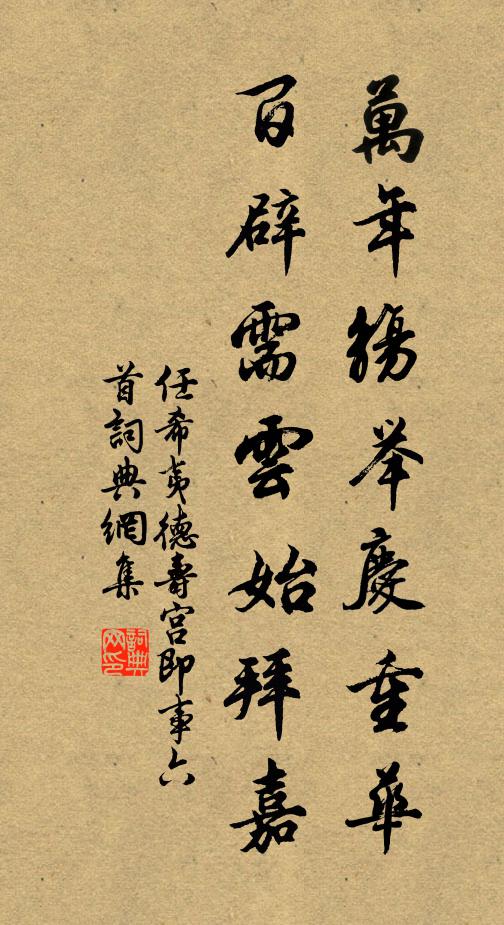 萬年觴举慶重華
百辟需雲始拜嘉
任希夷德壽宫即事六
首詞典網集
詞典
网印